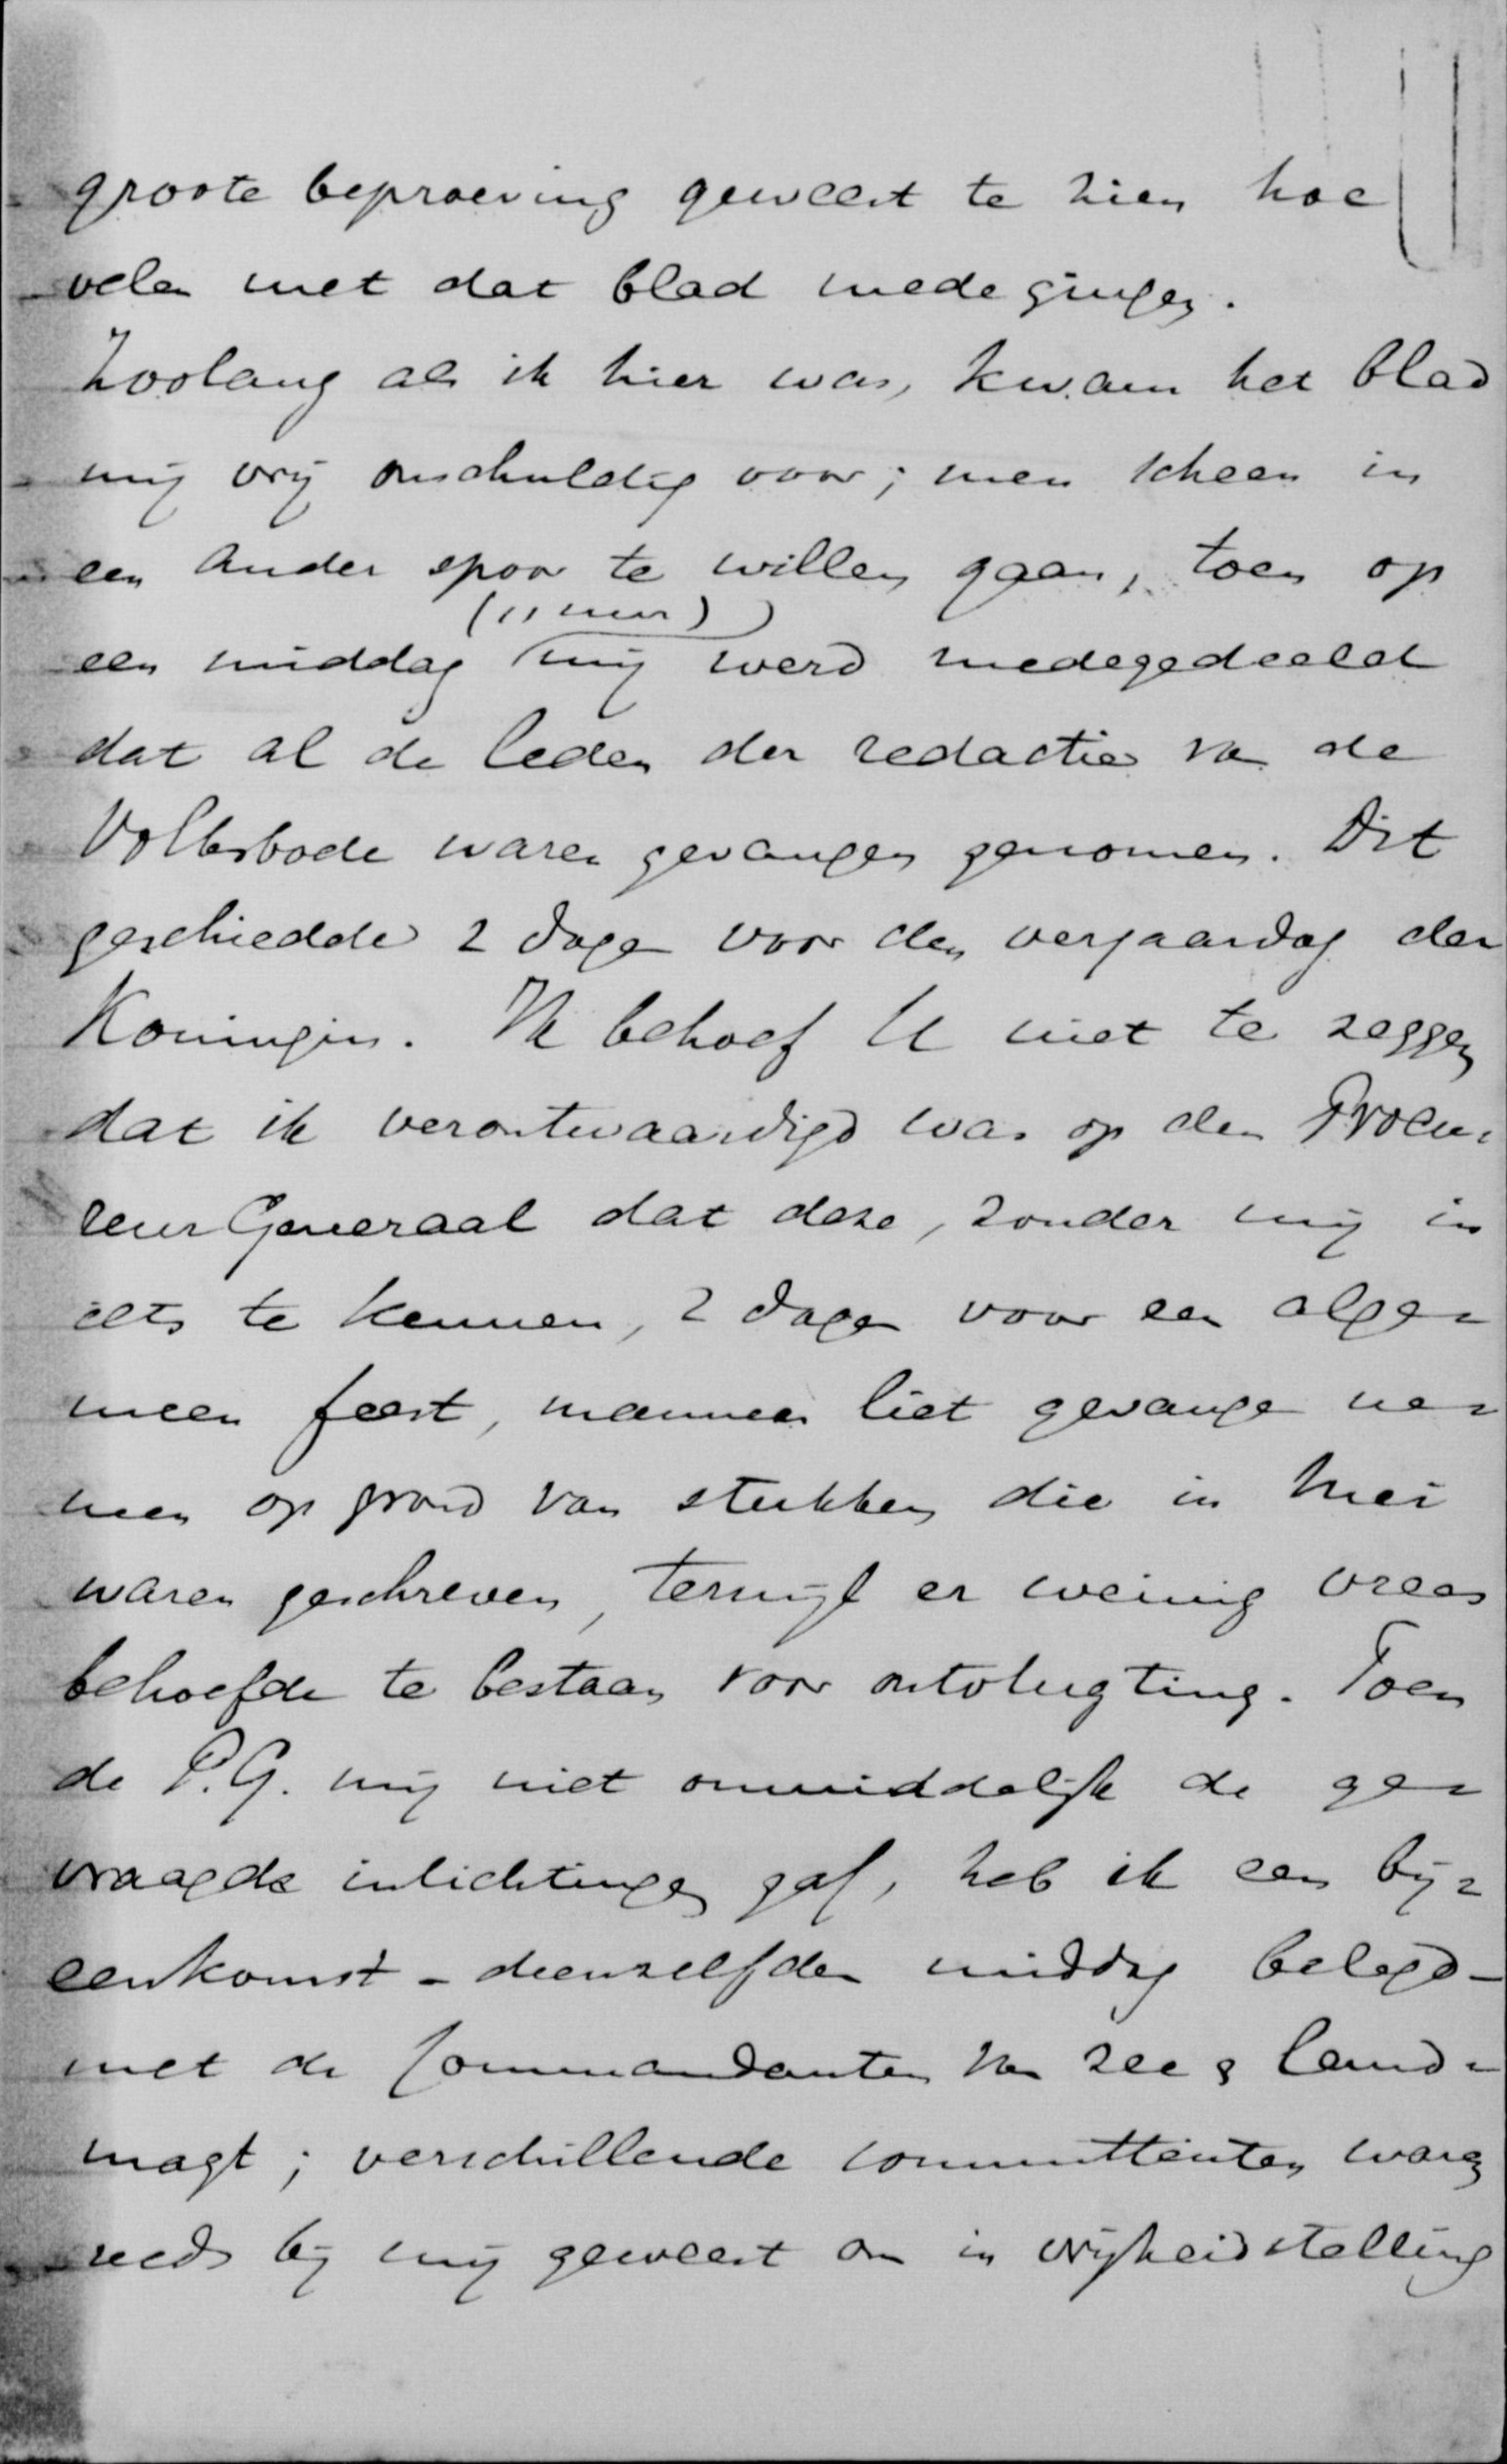 groote beproeving geweest te zien hoe
velen met dat blad mede gingen.
Zoolang als ik hier was, kwam het blad
mij vrij onschuldig voor; men scheen in
een ander spoor te willen gaan, toen op
(11 uur)
een middag mij werd medegedeeld
dat al de leden der redactie van de
Volksbode waren gevangen genomen. Dit
geschiedde 2 dagen voor den verjaardag der
Koningin. Ik behoef U niet te zeggen
dat ik verontwaardigd was op den Procu-
reur Generaal dat deze, zonder mij in
iets te kennen, 2 dagen voor een alge-
meen feest, mannen liet gevangen ne-
men op grond van stukken die in Mei
waren geschreven, terwijl er weinig vrees
behoefde te bestaan voor ontvlugting. Toen
de P.G. mij niet onmiddelijk de ge-
vraagde inlichtingen gaf, heb ik een bij-
eenkomst - dienzelfden middag belegd -
met de Commandanten van zee & land-
magt; verschillende committenten waren
reeds bij mij geweest om in vrijheidstelling